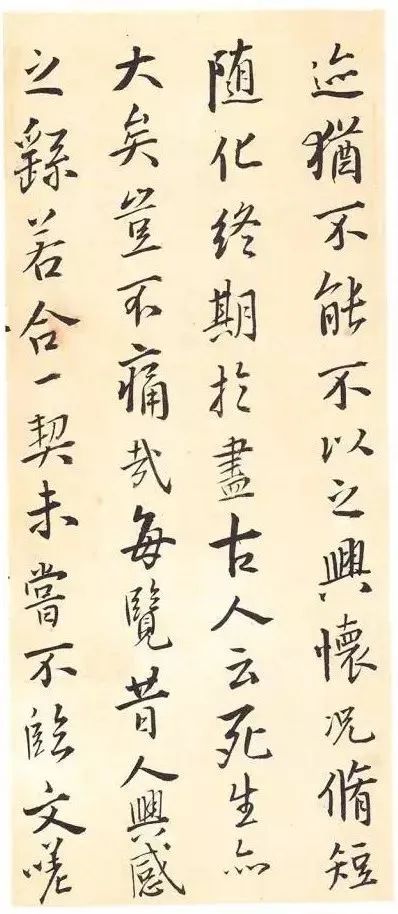 迹猶不能不以之興懷况脩短
随化終期於盡古人云死生亦
大矣豈不痛哉每覽昔人興感
之繇若合一契未嘗不臨文嗟